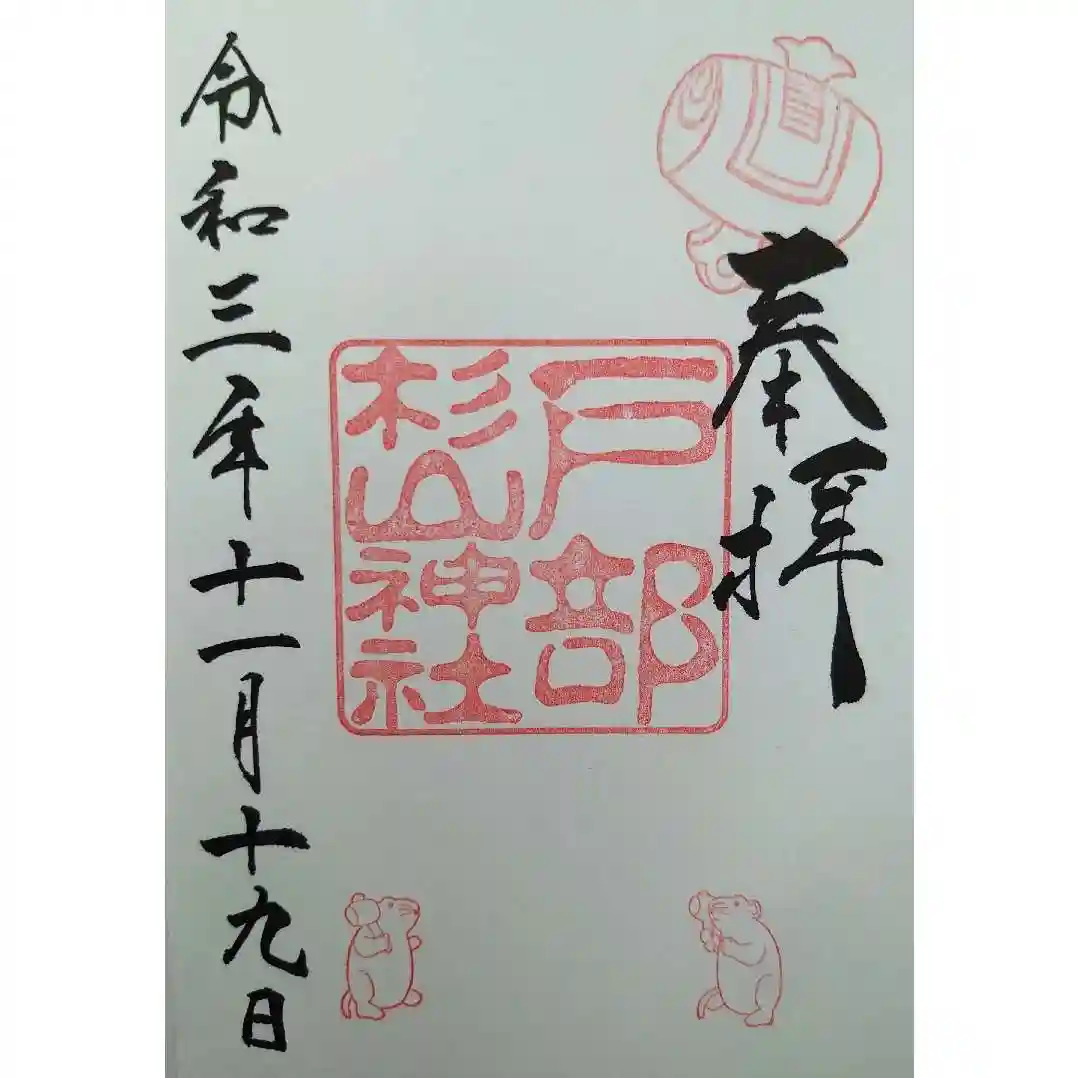 奉拝
戸部
杉山神社
令和三年十一月十九日